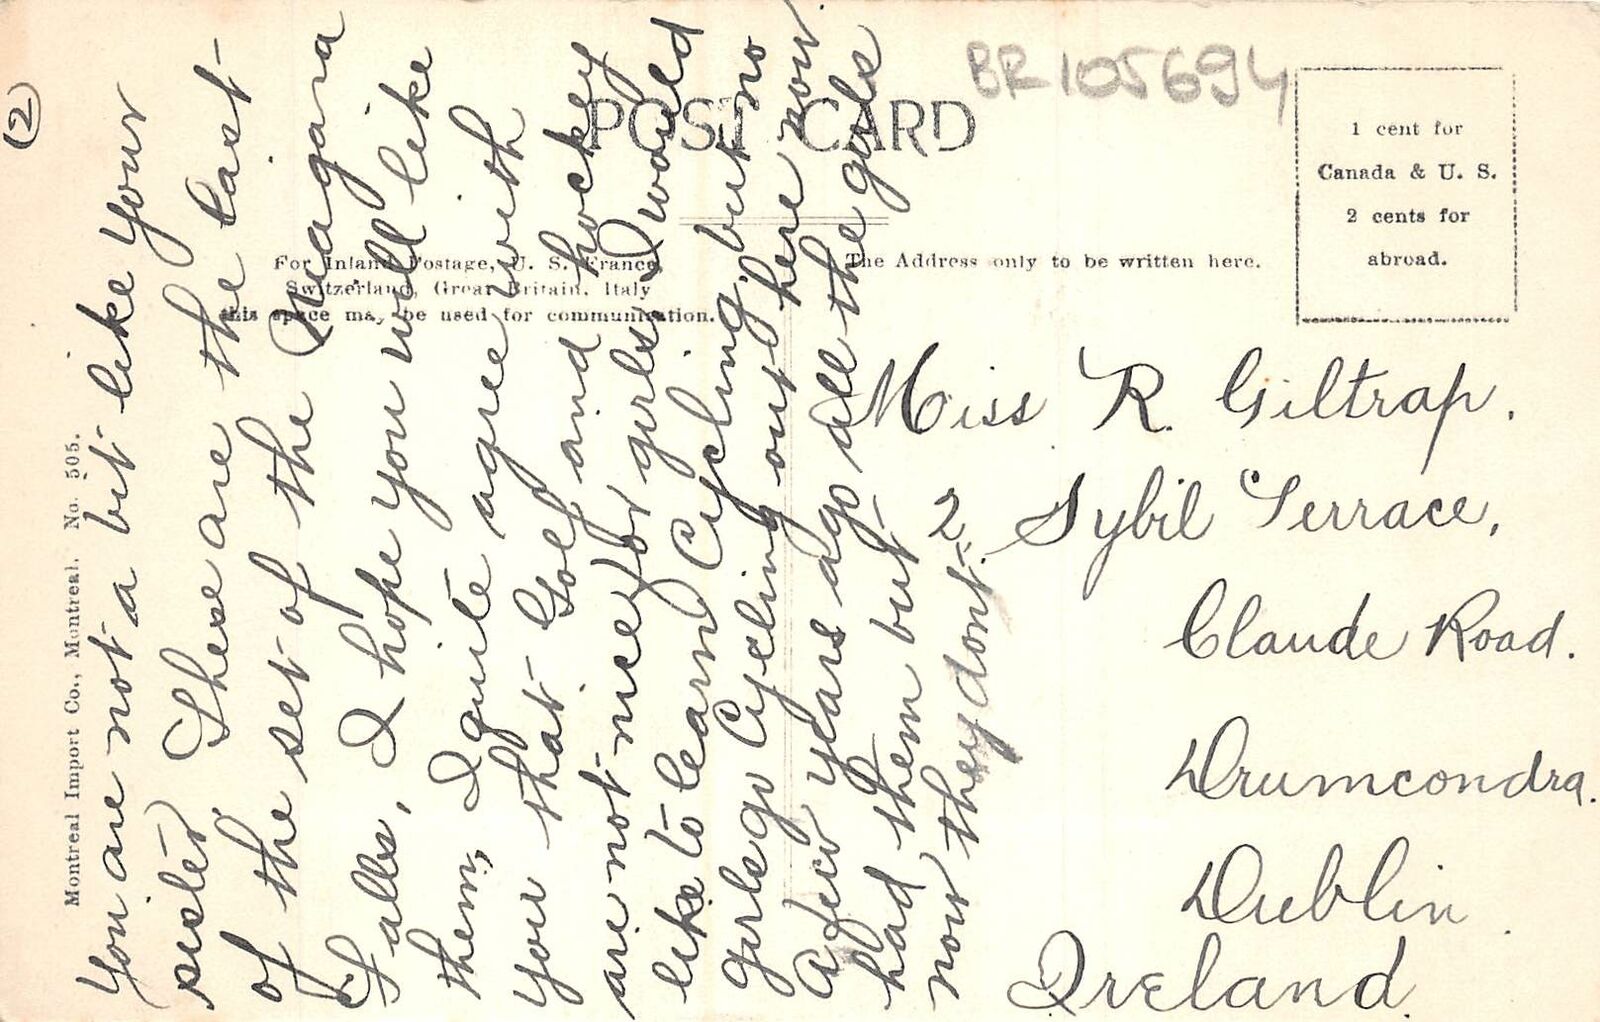 (2)
BR105694
POST CARD
1 cent for
Canada & U. S.
2 cents for
abroad.
For Inland Postage, U. S. France,
Switzerland, Great Britain, Italy
this space may be used for communication.
The Address only to be written here.
Montreal Import Co., Montreal. No. 505.
You are not a bit like your
sister. These are the last
of the set of the Niagara
Falls, I hope you will like
them, I quite agree with
you that Golf and hockey
are not nice for girls, I would
like to learn Cycling, but no
girls go Cycling out here now.
A few years ago all the girls
had them but
now they dont.
Miss R. Giltrap.
2. Sybil Terrace,
Claude Road.
Drumcondra.
Dublin.
Ireland.